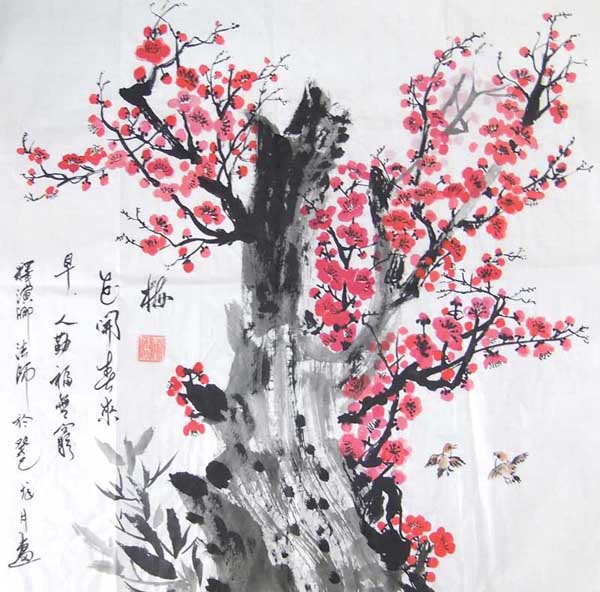 梅
花開春來
早 人勤福無窮
釋演卿法師於癸巳 月畫